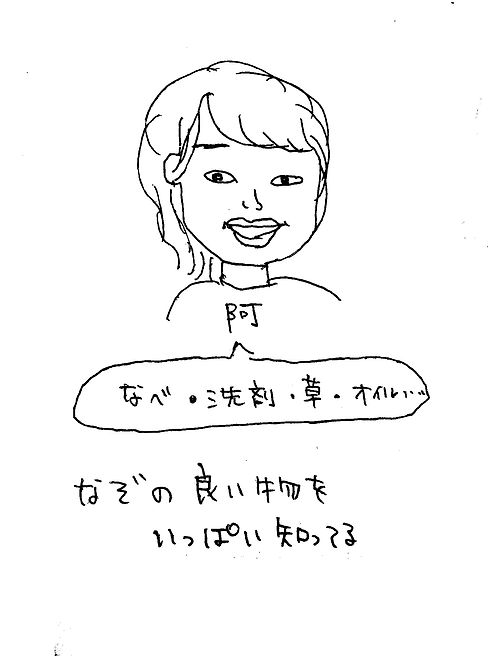 阿
なべ・洗剤・草・オイル…
なぞの良い物を
いっぱい知ってる